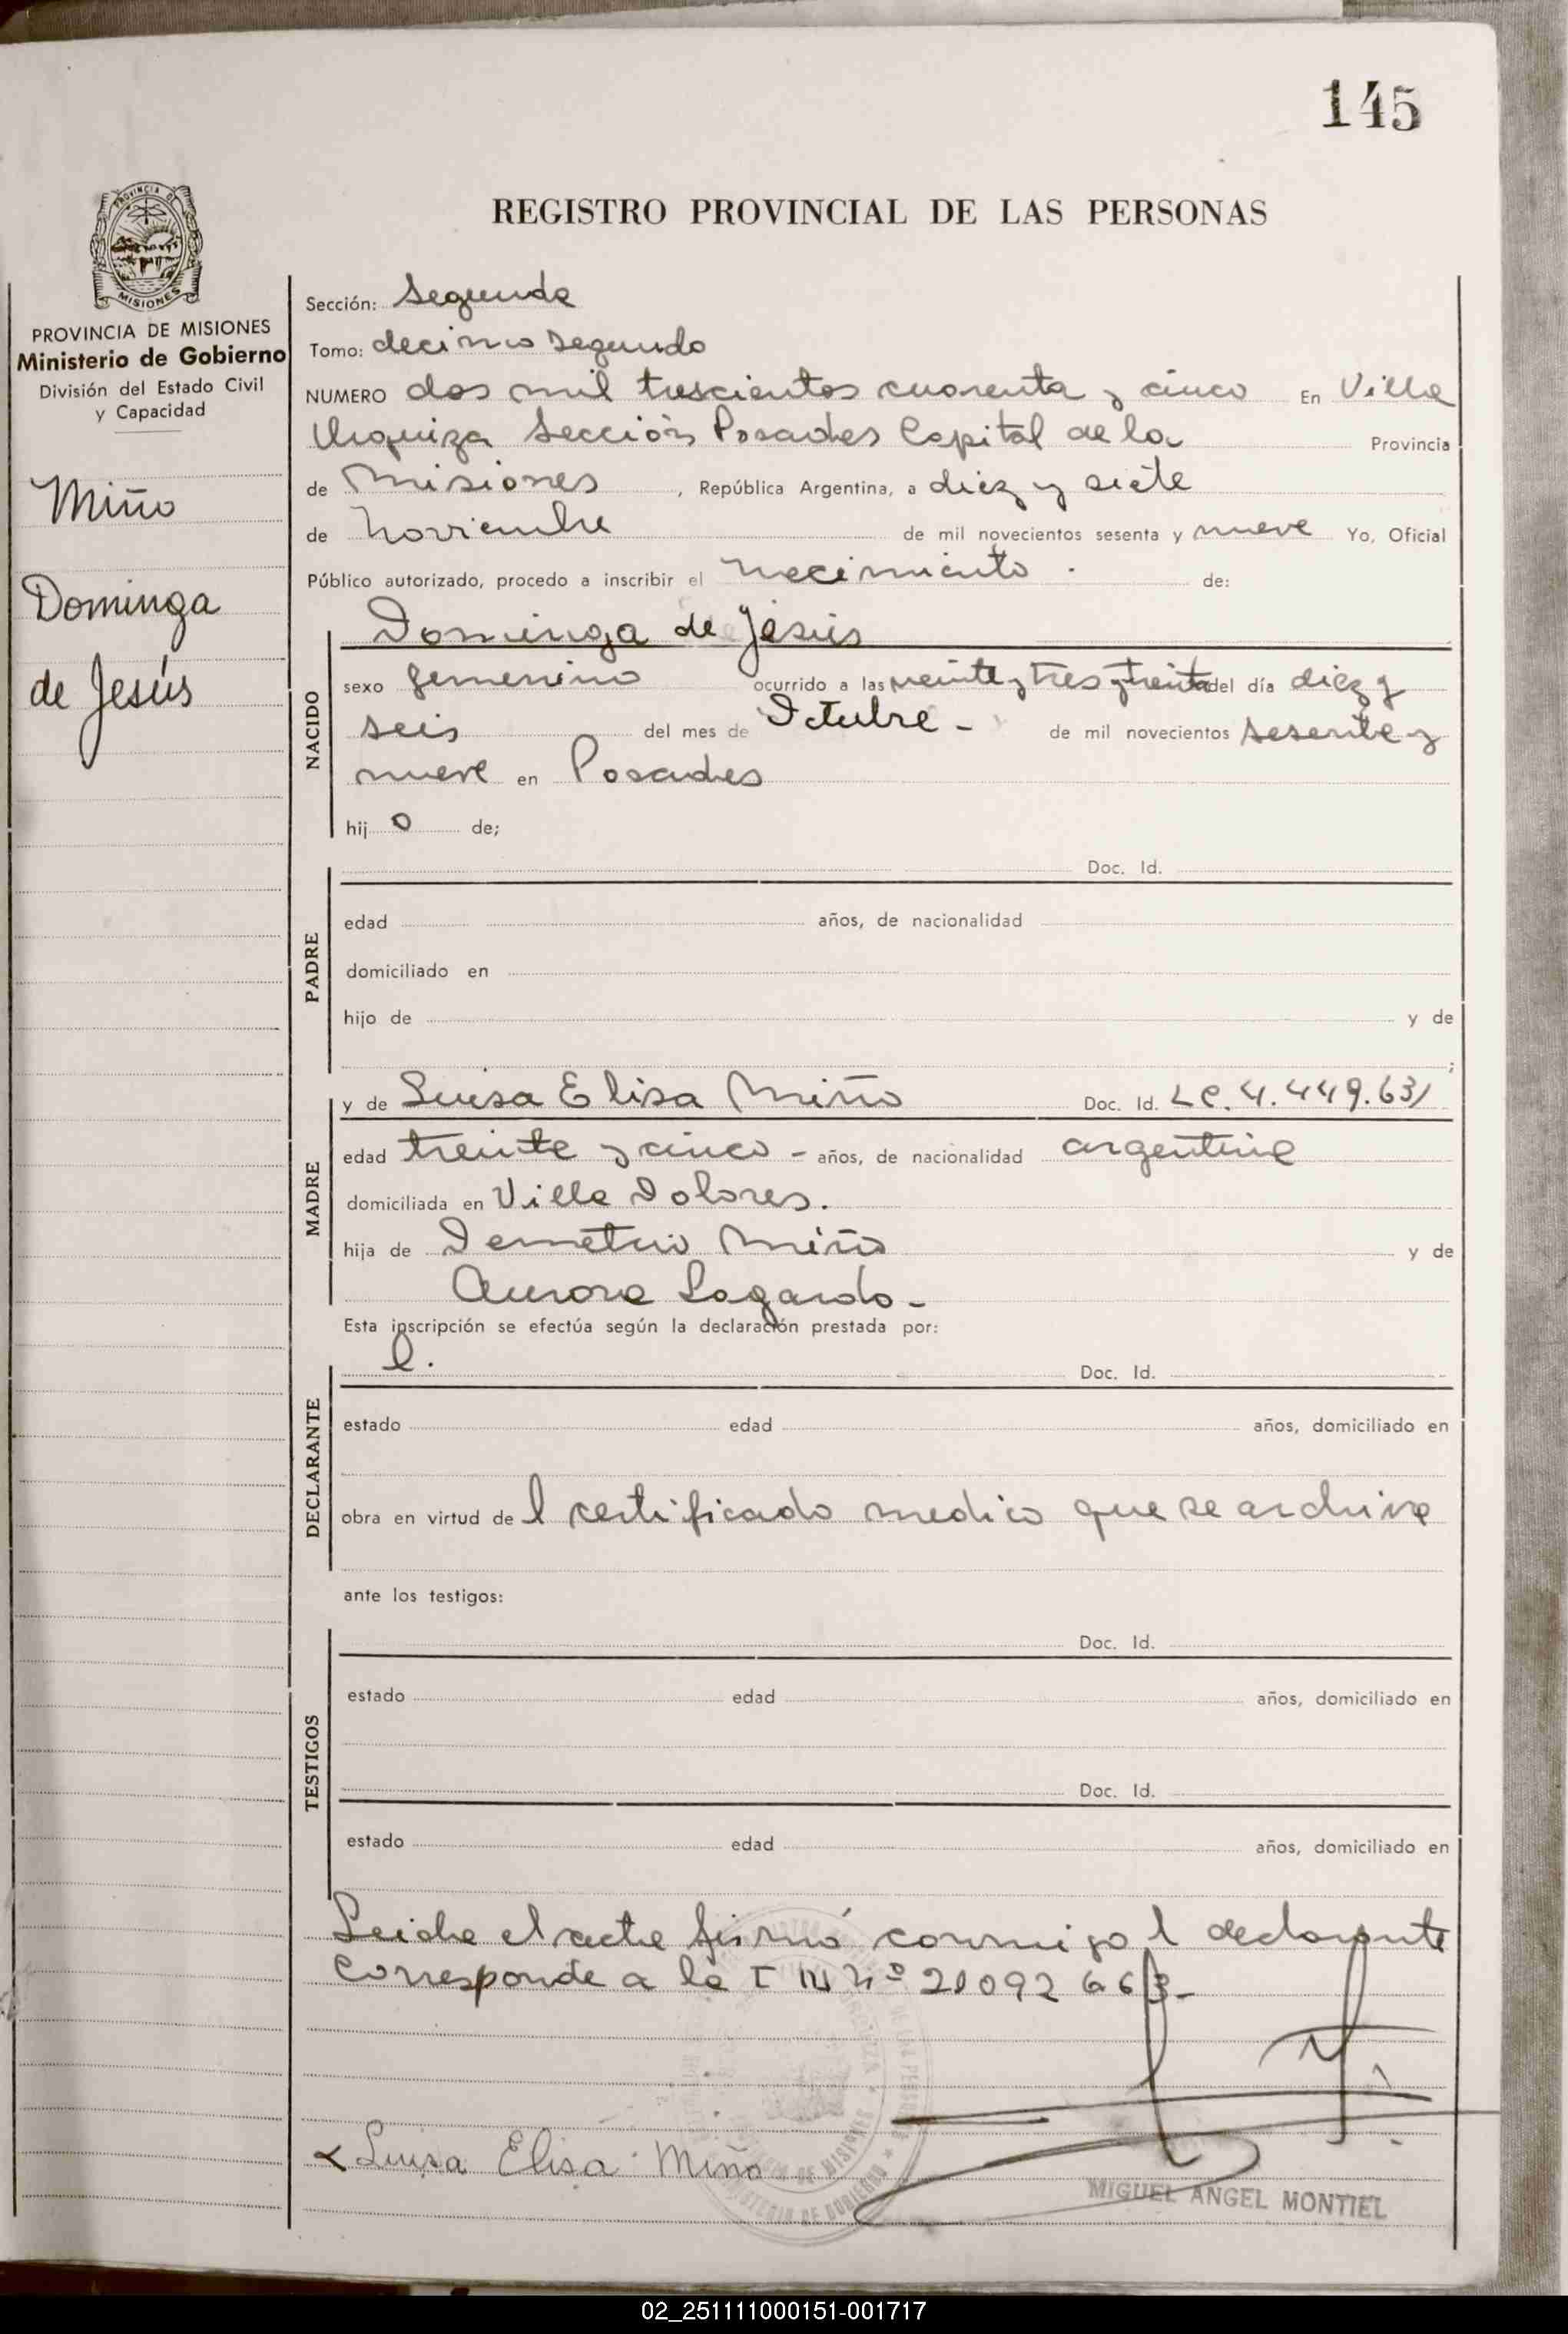 145
PROVINCIA DE
MISIONES
PROVINCIA DE MISIONES
Ministerio de Gobierno
División del Estado Civil
y Capacidad
Miño
Dominga
de Jesús
REGISTRO PROVINCIAL DE LAS PERSONAS
Sección: Segunda
Tomo: decimo segundo
NUMERO dos mil trescientos cuarenta y cinco En Villa
Urquiza Sección Posadas Capital de la Provincia
de Misiones , República Argentina, a diez y siete
de Noviembre de mil novecientos sesenta y nueve Yo, Oficial
Público autorizado, procedo a inscribir el nacimiento . de:
NACIDO
Dominga de Jesús
sexo femenino ocurrido a las veinte y tres y treinta del día diez y
seis del mes de Octubre - de mil novecientos sesenta y
nueve en Posadas
hij o de;
PADRE
Doc. Id.
edad años, de nacionalidad
domiciliado en
hijo de y de
;
MADRE
y de Luisa Elisa Miño Doc. Id. LC. 4.449.631
edad treinta y cinco - años, de nacionalidad argentina
domiciliada en Villa Dolores.
hija de Demetrio Miño y de
Aurora Lagardo -
Esta inscripción se efectúa según la declaración prestada por:
DECLARANTE
l. Doc. Id.
estado edad años, domiciliado en
obra en virtud de l certificado medico que se archiva
ante los testigos:
TESTIGOS
Doc. Id.
estado edad años, domiciliado en
Doc. Id.
estado edad años, domiciliado en
Leida el acta firmó conmigo l declarante
Corresponde a la nº 21092663-
Luisa Elisa Miño
MIGUEL ANGEL MONTIEL
02_251111000151-001717